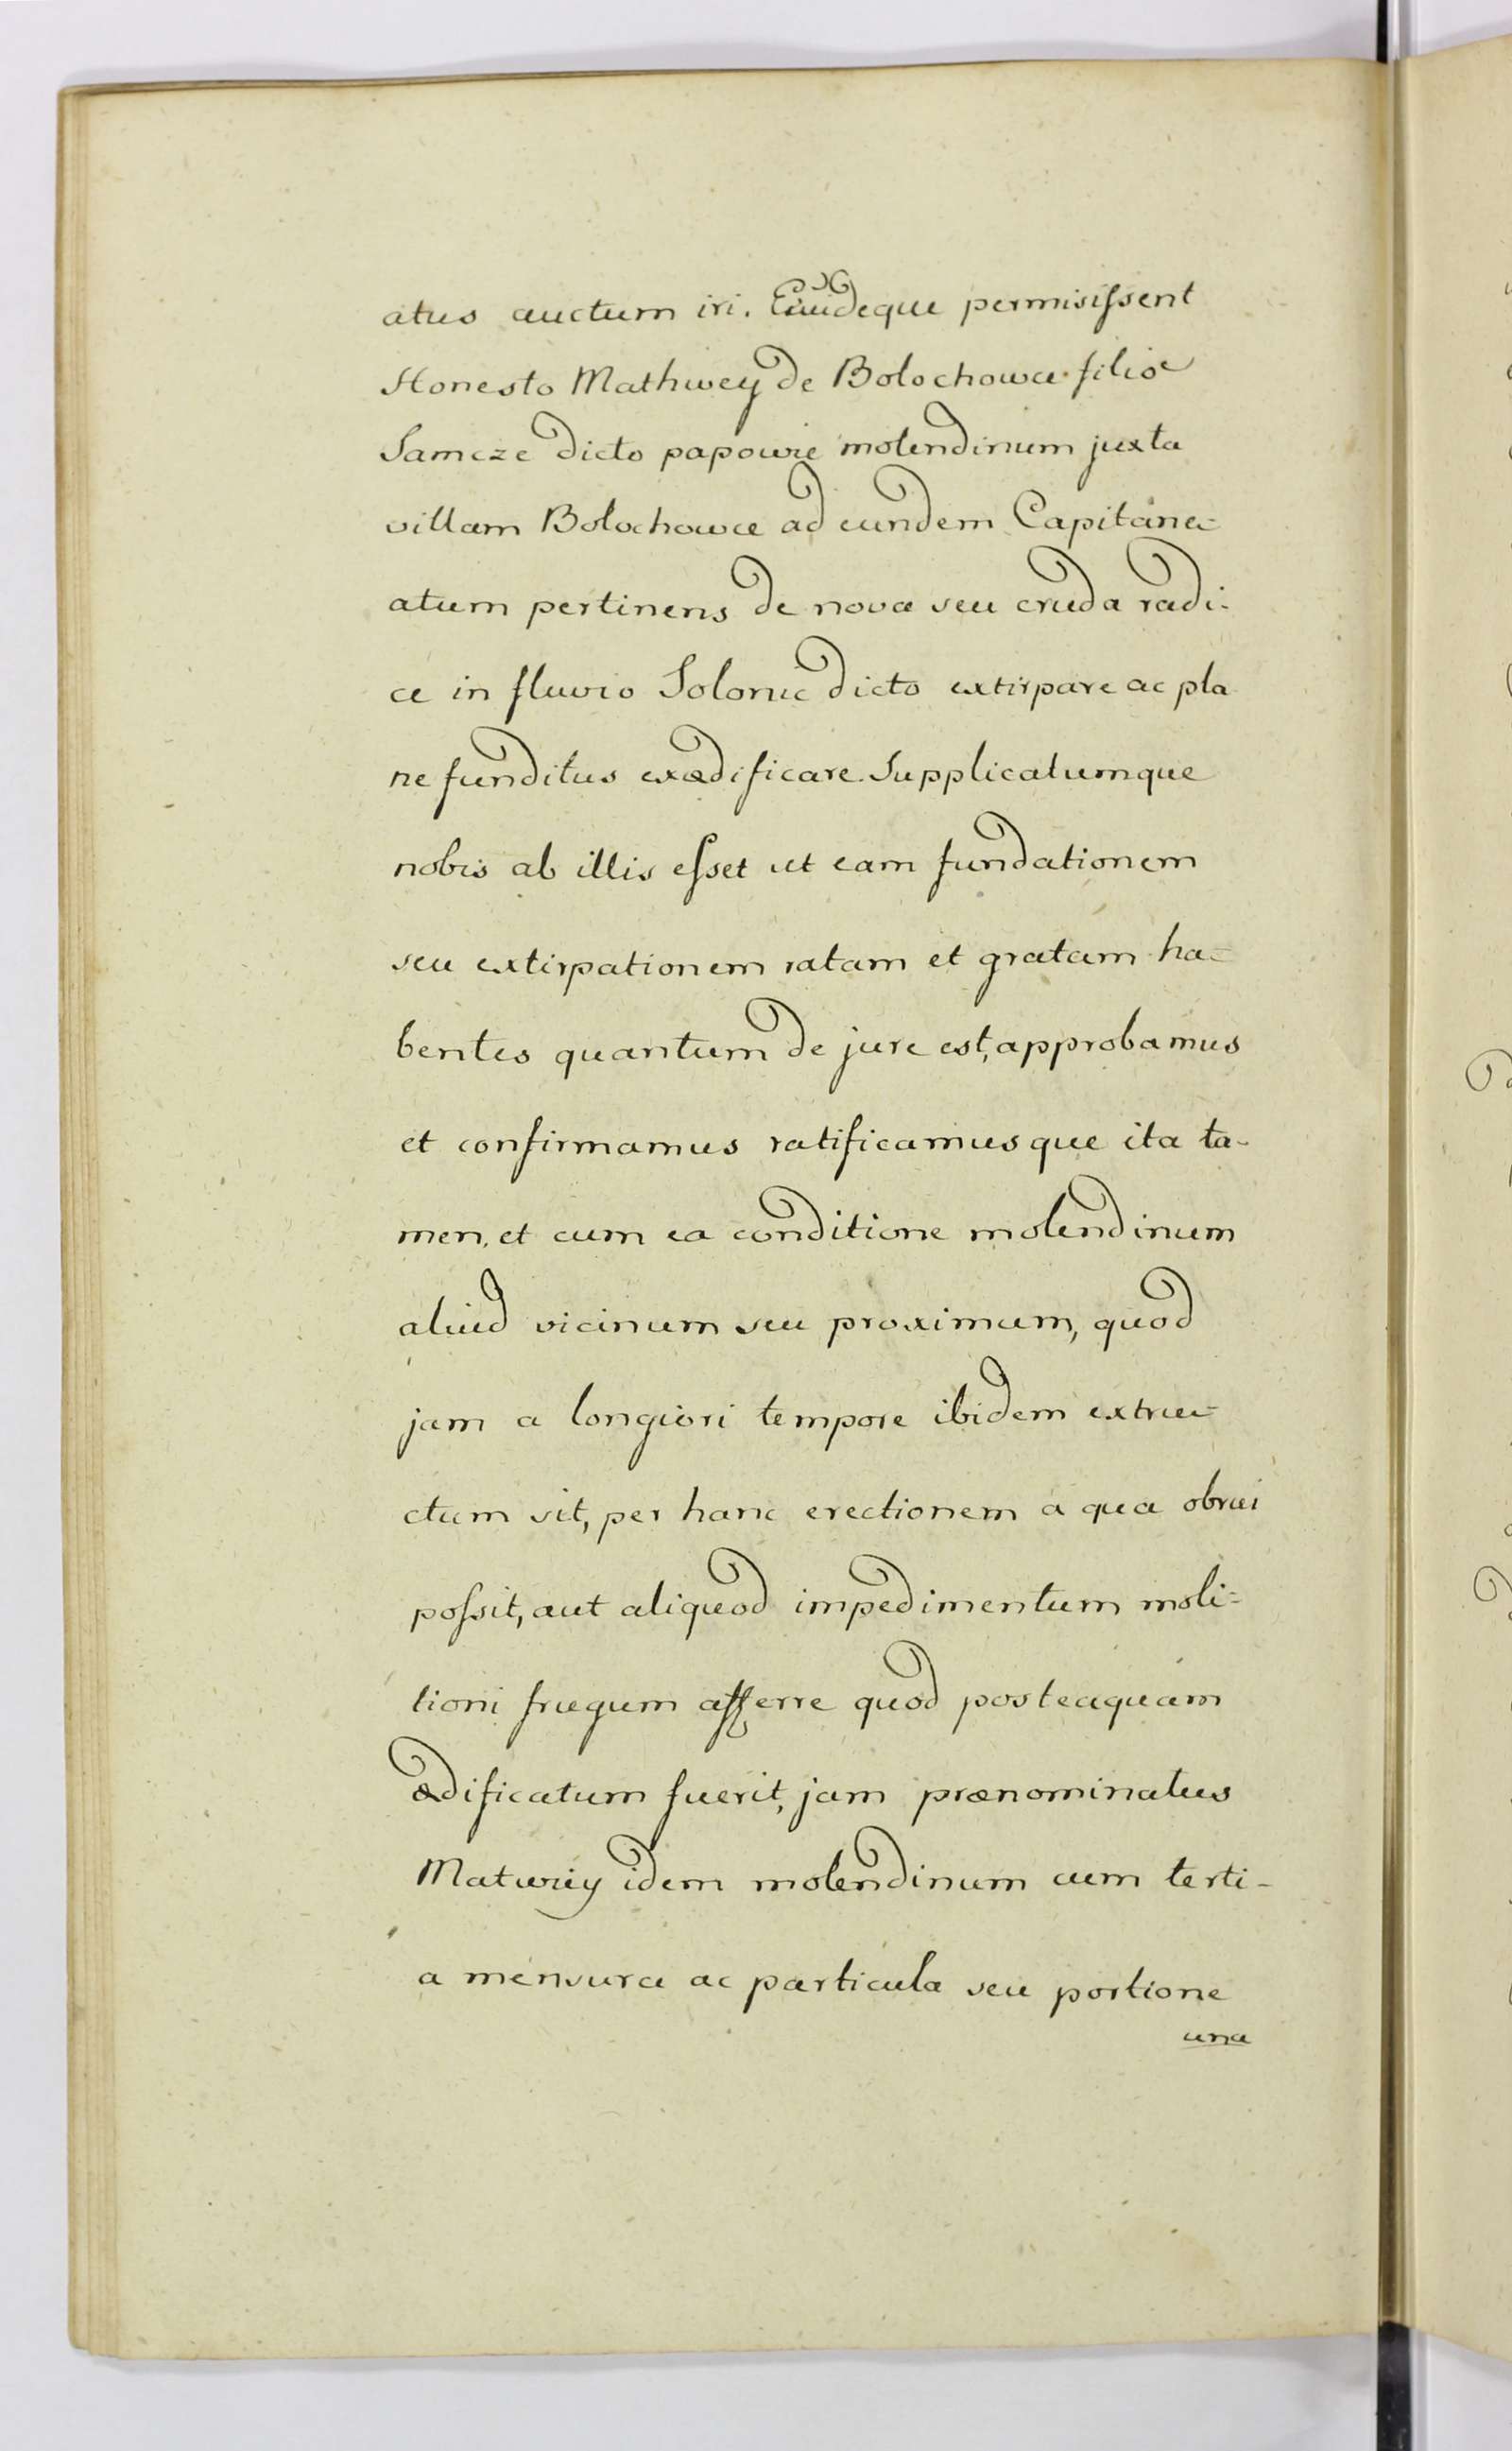 atus auctum iri. Euideque permisissent
Honesto Mathwey de Bolochowce filio
Samcze dicto papowie molendinum juxta
villam Bolochowce ad eundem Capitane-
atum pertinens de nova seu cruda radi-
ce in fluvio Solonic dicto extirpare ac pla
ne funditus exædificare. Supplicatumque
nobis ab illis esset ut eam fundationem
seu extirpationem ratam et gratam ha-
bentes quantum de jure est, approbamus
et confirmamus ratificamusque ita ta-
men, et cum ea conditione molendinum
aliud vicinum seu proximum, quod
jam a longiori tempore ibidem extru-
ctum sit, per hanc erectionem a qua obrui
possit, aut aliquod impedimentum moli-
tioni frugum afferre quod posteaquam
ædificatum fuerit, jam prænominatus
Matwiey idem molendinum cum terti-
a mensura ac particula seu portione
una